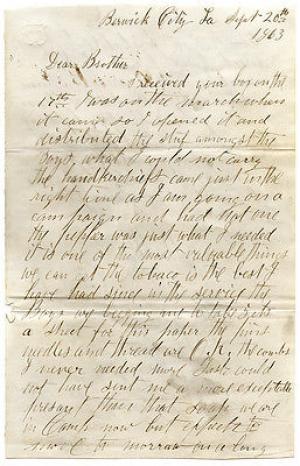 Berwick City La Sept 20th
1863
Dear Brother
I received your box on the
17th I was on the march when
it came so I opened it and
distributed the stuf amongst the
Boys, what I could not carry
the handkerchiefs came just in the
right time as I am going on a
campaign and had not one
the pepper was just what I needed
it is one of the most valuable things
we can get the tobaco is the best I
have had since in the service the
Boys are begging me to take
a sheet for this paper the pins
needles and thread are O.K. the combs
I never needed more Just could
not have sent me a more exceptable
present than that soap we are
in Camp now but expects to
move to morrow on a long